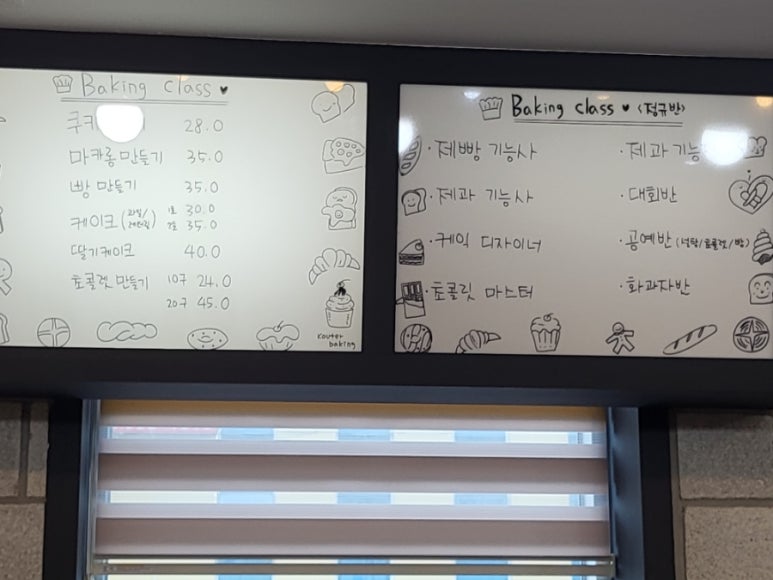 Baking class ♥
28.0
마카롱만들기 35.0
빵 만들기 35.0
케이크 1호 30.0
2호 35.0
딸기케이크 40.0
초콜렛만들기 10구 24.0
20구 45.0
kouter
baking
Baking class ♥ <정규반>
· 제빵 기능사
· 제과 기능사
· 케익 디자이너
· 초콜릿 마스터
· 제과 기능
· 대회반
· 공예반 (설탕/초콜렛/빵)
· 화과자반